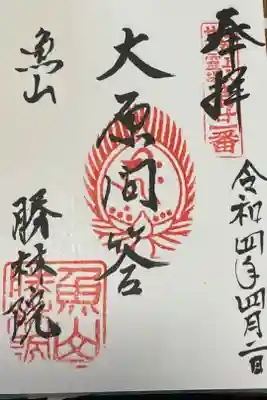 奉拝
令和四年四月二日
大原問答
魚山
勝林院
魚山
勝林院